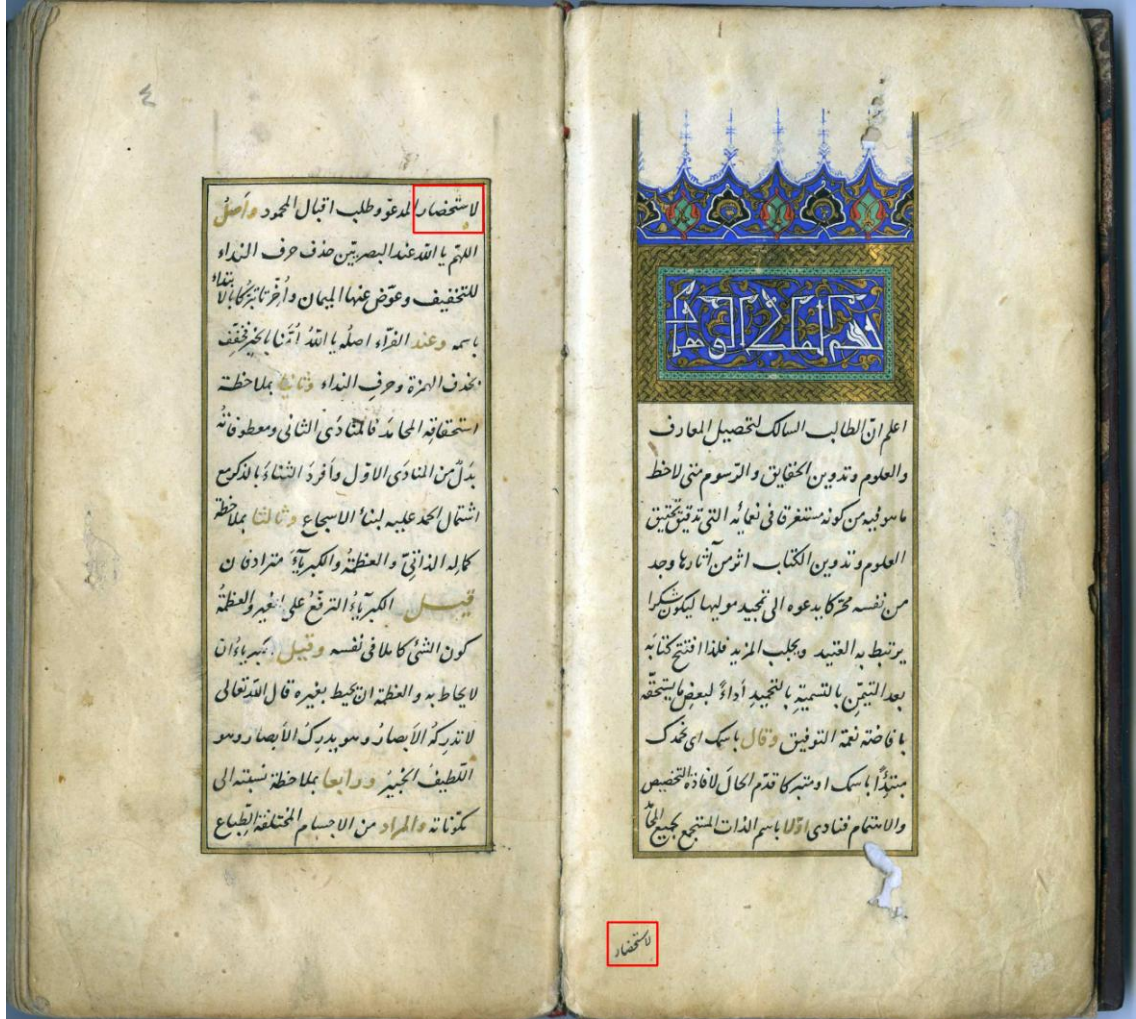 اعلم انّ الطالب السالك لتحصيل المعارف
والعلوم وتدوين الحقايق والرّسوم متى لاحظ
ما هو فيه من كونه مستغرقا فى نعمائه التى تدقيق تحقيق
العلوم وتدوين الكتاب اثر من آثارها وجد
من نفسه محرّكا يدعوه الى تمجيد موليها ليكون شكرا
يرتبط به العتيد ويجلب المزيد فلذا افتتح كتابَه
بعد التيمّن بالتسميةِ بالتمجيدِ أداءً لبعضِ ما يستحقّه
بافاضته نعمة التوفيق وقال باسمك اى نحمدك
مبتدِئًا باسمك او متبركا قدّم الحالَ لافادة التخصيص
والاهتمام فنادى اوّلا باسم الذات المستجمع لجميع المحامد
لاستحضار
٤
لاستحضار المدعوّ وطلب اقبال المحمود وأصلُ
اللهمّ يا الله عند البصريّين حذف حرف النداء
للتخفيف وعوّض عنها الميمان وأُخّرتا تبرّكا بالابتداء
باسمه وعند الفرّاء اصله يا اللهُ اُمَّنا بالخير فخفّف
بحذف الهمزة وحرفِ النداء وثانيا بملاحظة
استحقاقِه المحامدَ فالمنادَى الثانى ومعطوفاتُه
بدلٌ من المنادَى الاوّل وأفردَ الثناءَ بالذكر مع
اشتمال الحمد عليه لبناءِ الاسجاع وثالثا بملاحظة
كمالِه الذاتىّ والعظمةُ والكبرياءُ مترادفان
قيل الكبرياءُ الترفّعُ على الغير والعظمةُ
كون الشئ كاملا فى نفسه وقيل الكبرياءُ ان
لا يحاط به والعظمة ان يحيط بغيره قال الله تعالى
لا تدركهُ الأبصارُ وهو يدركُ الأبصار وهو
اللطيفُ الخبيرُ ورابعا بملاحظة نسبته الى
مكوّناته والمراد من الاجسام المختلفةُ الطِباع